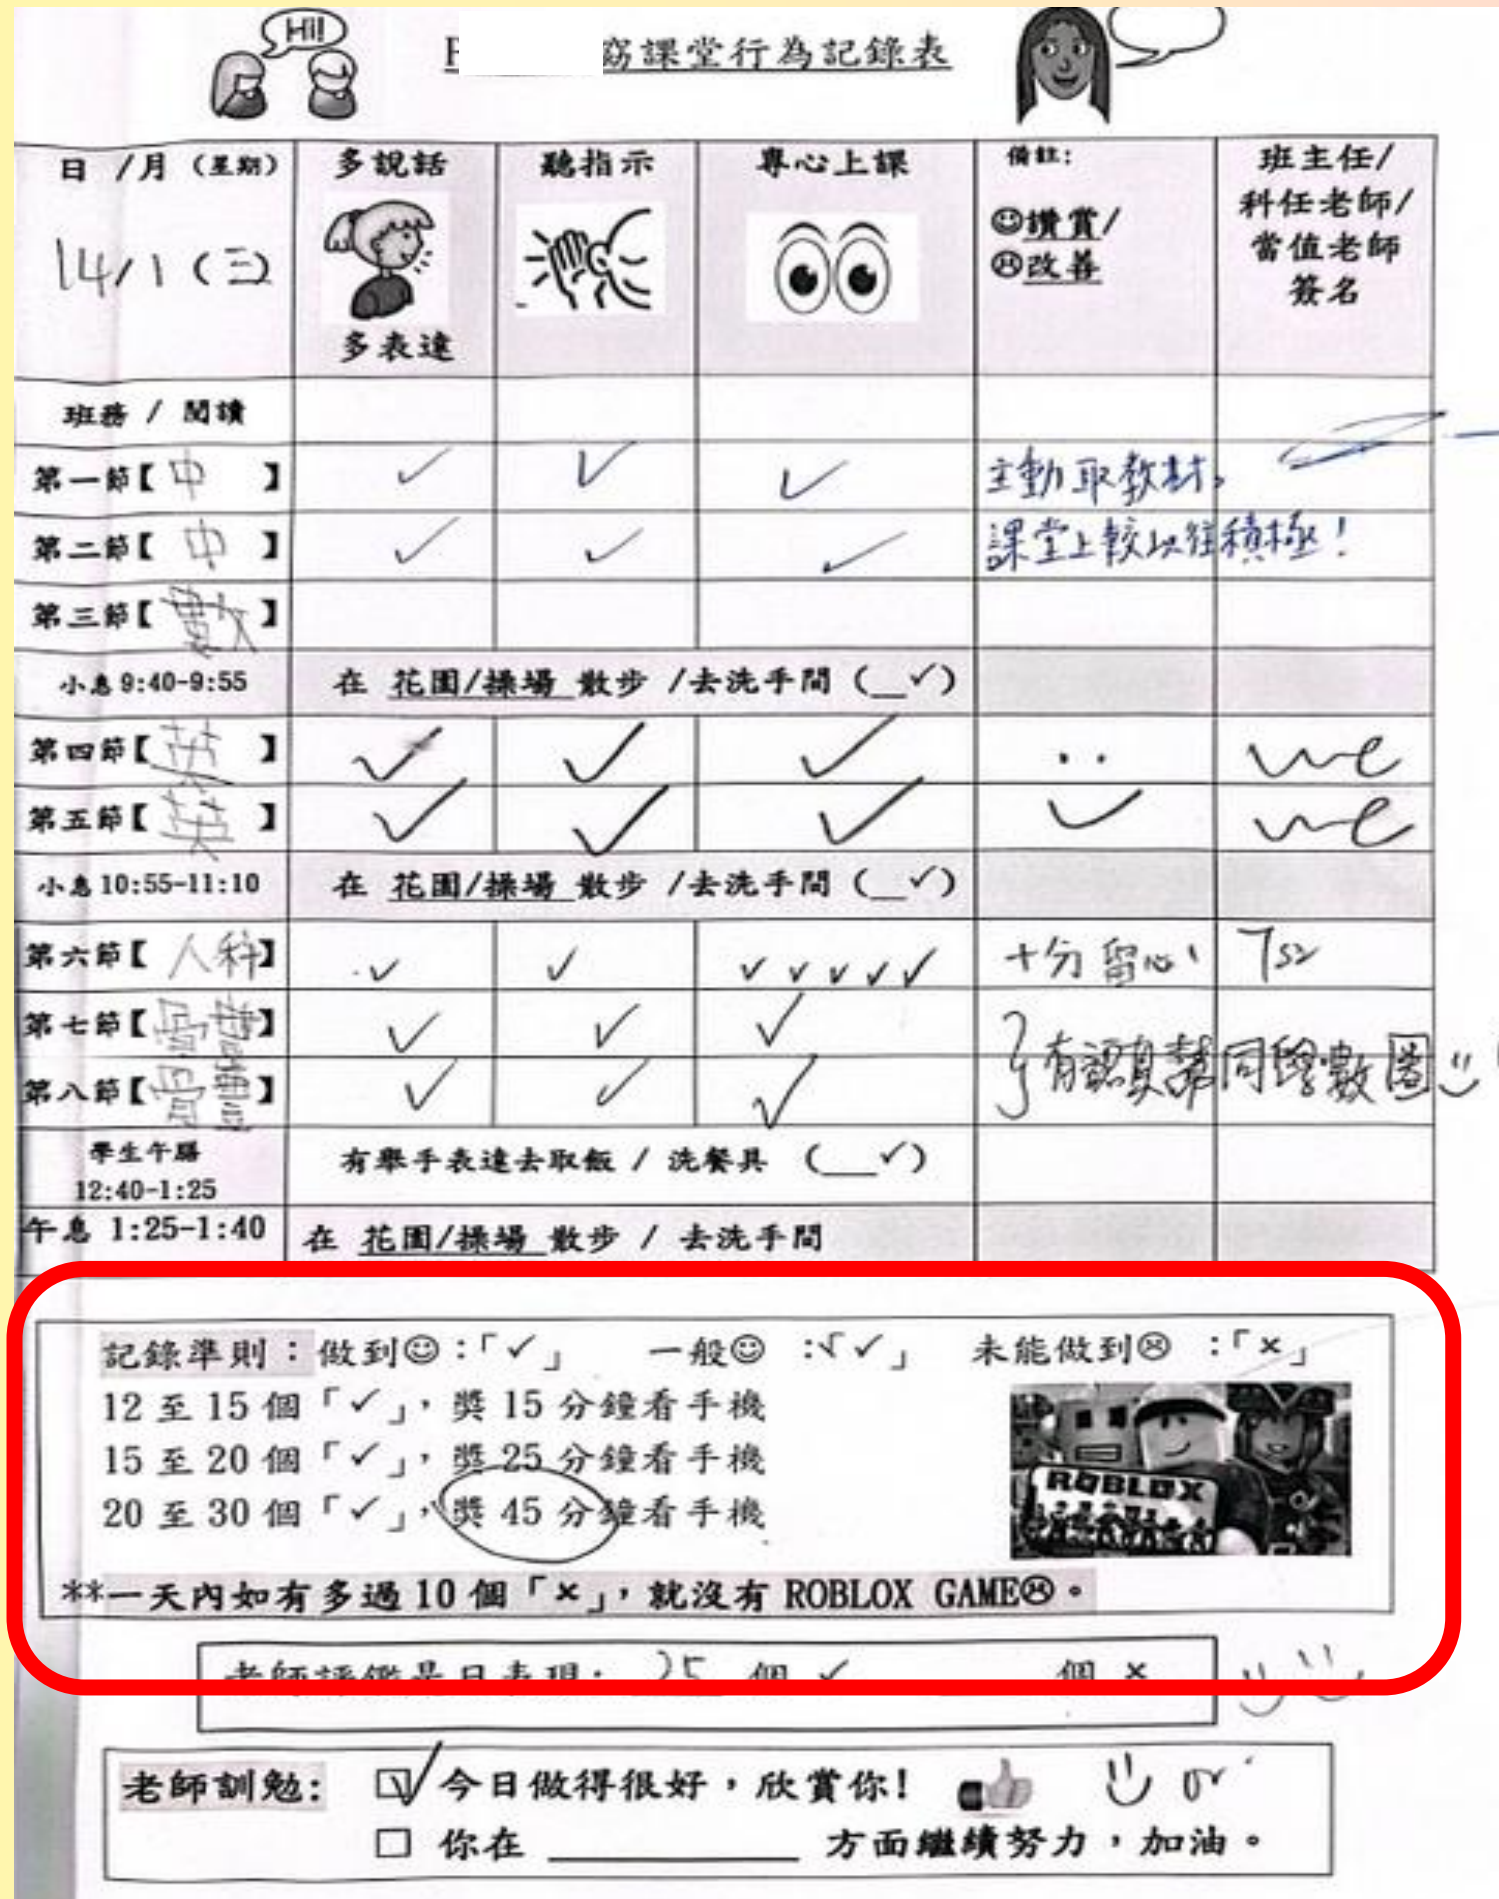 Hi!
窈課堂行為記錄表
日 /月 (星期) 多說話 聽指示 專心上課 備註: 班主任/
科任老師/
☺讚賞/
當值老師
14/1 (三) ☹改善
簽名
多表達
班務 / 閱讀
第一節【中 】 ✓ ✓ ✓ 主動取教材。
第二節【中 】 ✓ ✓ ✓ 課堂上較以往積極!
第三節【數 】
小息 9:40-9:55 在 花園/操場 散步 /去洗手間 (__✓)
第四節【英 】 ✓ ✓ ✓
第五節【英 】 ✓ ✓ ✓
小息 10:55-11:10 在 花園/操場 散步 /去洗手間 (__✓)
第六節【人科】 ✓ ✓ ✓✓✓✓✓ 十分留心
第七節【 】 ✓ ✓ ✓ 有認真幫同學數圈
第八節【 】 ✓ ✓ ✓
學生午膳
12:40-1:25 有舉手表達去取飯 / 洗餐具 (__✓)
午息 1:25-1:40 在 花園/操場 散步 / 去洗手間
記錄準則：做到☺：「✓」 一般☺ ：「✓」 未能做到☹ ：「×」
12 至 15 個「✓」，獎 15 分鐘看手機
15 至 20 個「✓」，獎 25 分鐘看手機
20 至 30 個「✓」，獎 45 分鐘看手機
ROBLOX
**一天內如有多過 10 個「×」，就沒有 ROBLOX GAME☹。
老師評鑑是日表現: 25 個 ✓ 個 ×
老師訓勉: ☑ 今日做得很好，欣賞你!
□ 你在 ________ 方面繼續努力，加油。